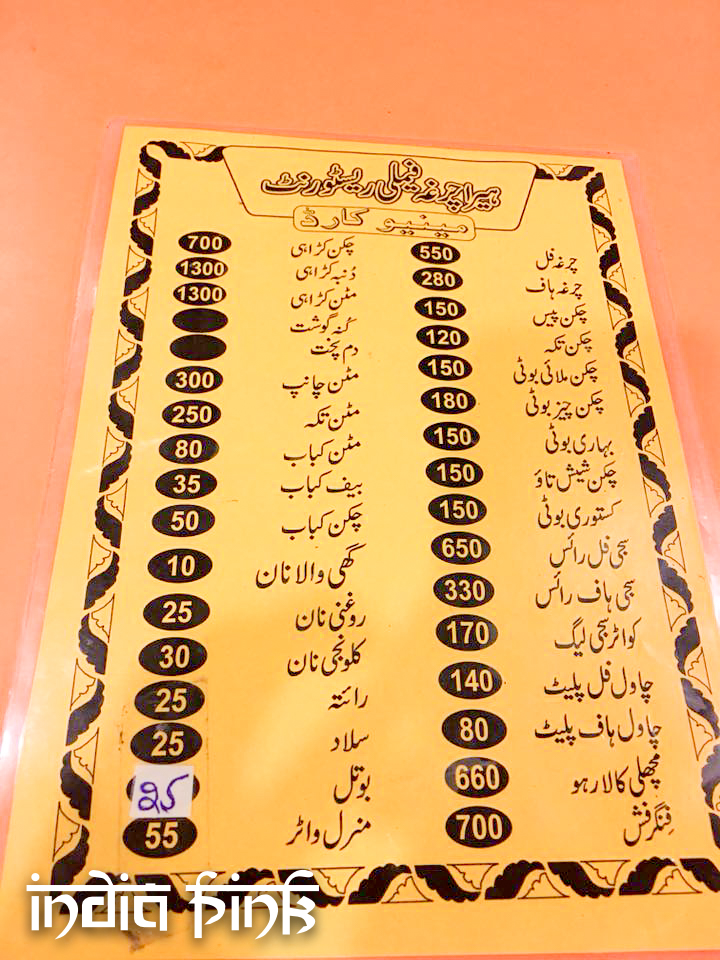 ہیرا چرغہ فیملی ریسٹورنٹ
مینیو کارڈ
چرغہ فل 550
چرغہ ہاف 280
چکن پیس 150
چکن تکہ 120
چکن ملائی بوٹی 150
چکن چیز بوٹی 180
بہاری بوٹی 150
چکن شیش تاؤ 150
کستوری بوٹی 150
سجی فل رائس 650
سجی ہاف رائس 330
کواٹر سجی لیگ 170
چاول فل پلیٹ 140
چاول ہاف پلیٹ 80
مچھلی کالا رہو 660
فنگر فش 700
چکن کڑاہی 700
دنبہ کڑاہی 1300
مٹن کڑاہی 1300
کنہ گوشت
دم پخت
مٹن چانپ 300
مٹن تکہ 250
مٹن کباب 80
بیف کباب 35
چکن کباب 50
گھی والا نان 10
روغنی نان 25
کلونجی نان 30
رائتہ 25
سلاد 25
بوتل 25
منرل واٹر 55
india pink